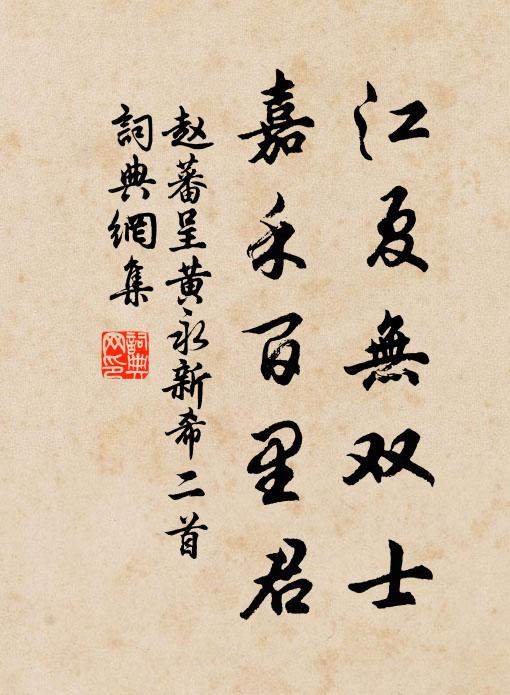 江夏無双士
嘉禾百里君
赵蕃呈黄永新希二首
詞典網集
詞典網印